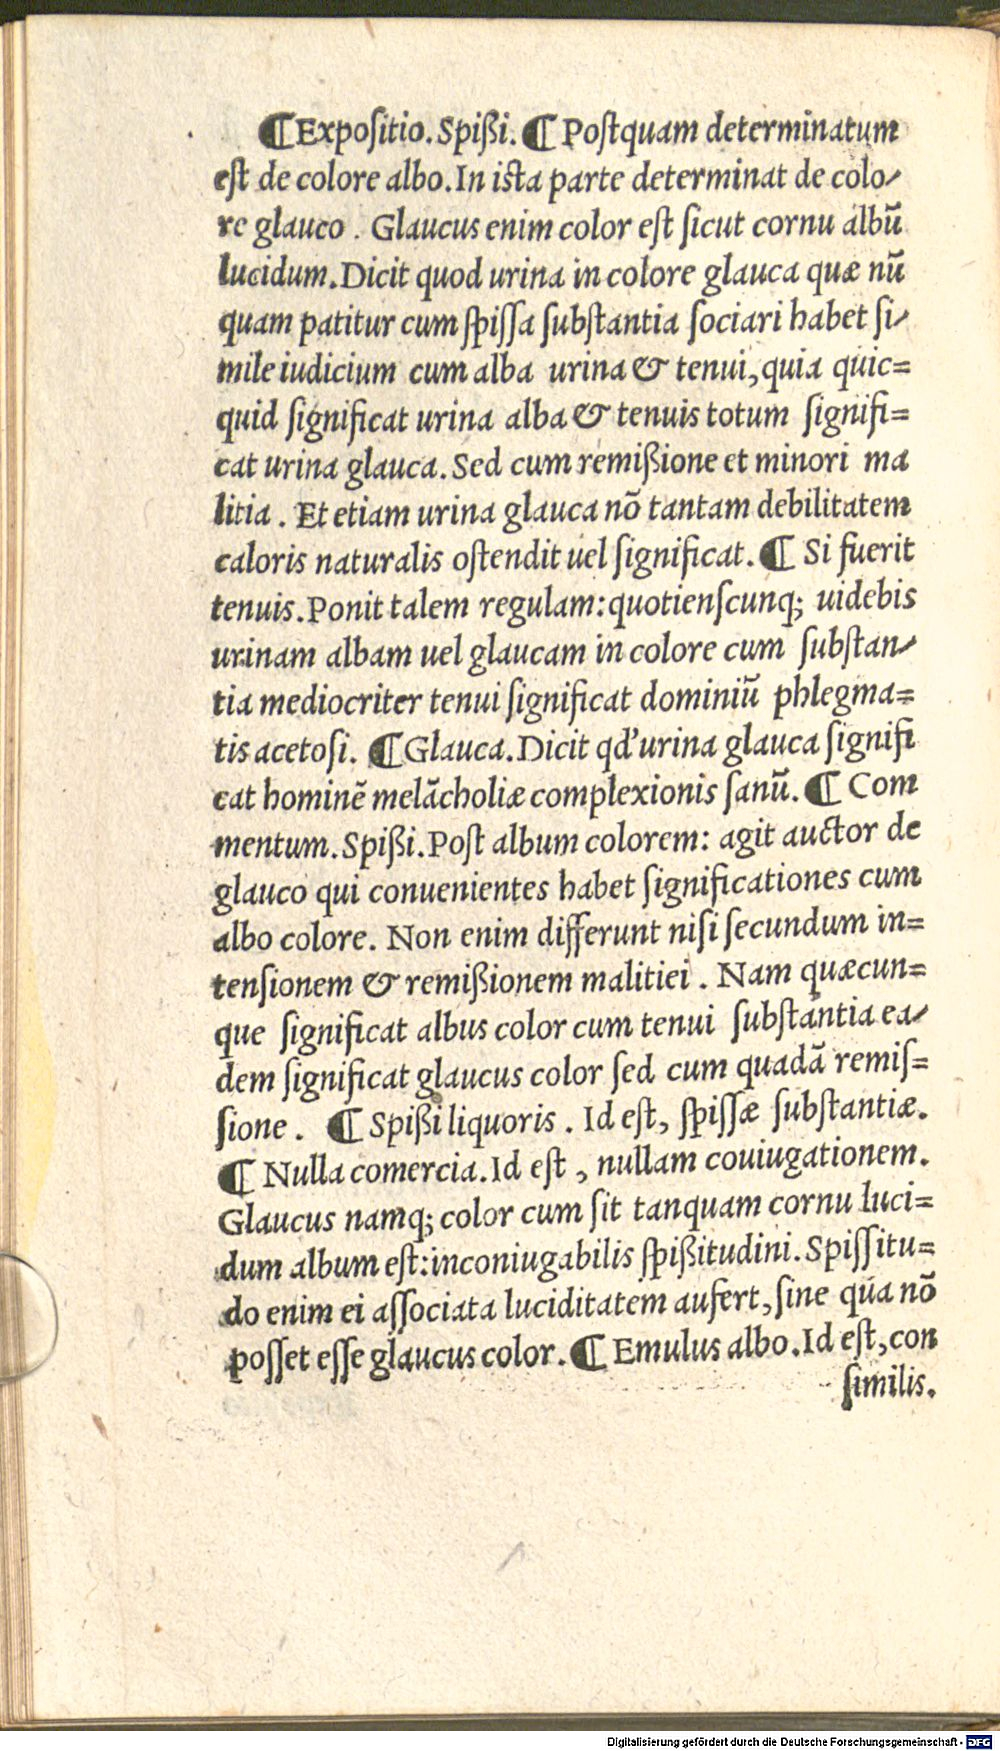 ¶Expoſitio. Spißi. ¶ Poſtquam determinatum
eſt de colore albo. In iſta parte determinat de colo-
re glauco . Glaucus enim color eſt ſicut cornu albū
lucidum. Dicit quod urina in colore glauca quæ nū
quam patitur cum ſpiſſa ſubſtantia ſociari habet ſi-
mile iudicium cum alba urina & tenui, quia quic=
quid ſignificat urina alba & tenuis totum ſignifi=
cat urina glauca. Sed cum remißione et minori ma
litia . Et etiam urina glauca nō tantam debilitatem
caloris naturalis oſtendit uel ſignificat. ¶ Si fuerit
tenuis. Ponit talem regulam: quotienſcunq; uidebis
urinam albam uel glaucam in colore cum ſubſtan-
tia mediocriter tenui ſignificat dominiū phlegma=
tis acetoſi. ¶Glauca. Dicit qđ' urina glauca ſignifi
cat hominē melācholiæ complexionis ſanū. ¶ Com
mentum. Spißi. Poſt album colorem: agit auctor de
glauco qui conuenientes habet ſignificationes cum
albo colore. Non enim differunt niſi ſecundum in=
tenſionem & remißionem malitiei . Nam quæcun=
que ſignificat albus color cum tenui ſubſtantia ea-
dem ſignificat glaucus color ſed cum quadā remiſ=
ſione . ¶ Spißi liquoris . Id eſt, ſpiſſæ ſubſtantiæ.
¶ Nulla comercia. Id eſt , nullam couiugationem.
Glaucus namq; color cum ſit tanquam cornu luci=
dum album eſt: inconiugabilis ſpißitudini. Spiſſitu=
do enim ei aſſociata luciditatem aufert, ſine qua nō
poſſet eſſe glaucus color. ¶ Emulus albo. Id eſt, con
ſimilis.
Digitalisierung gefördert durch die Deutsche Forschungsgemeinschaft - DFG